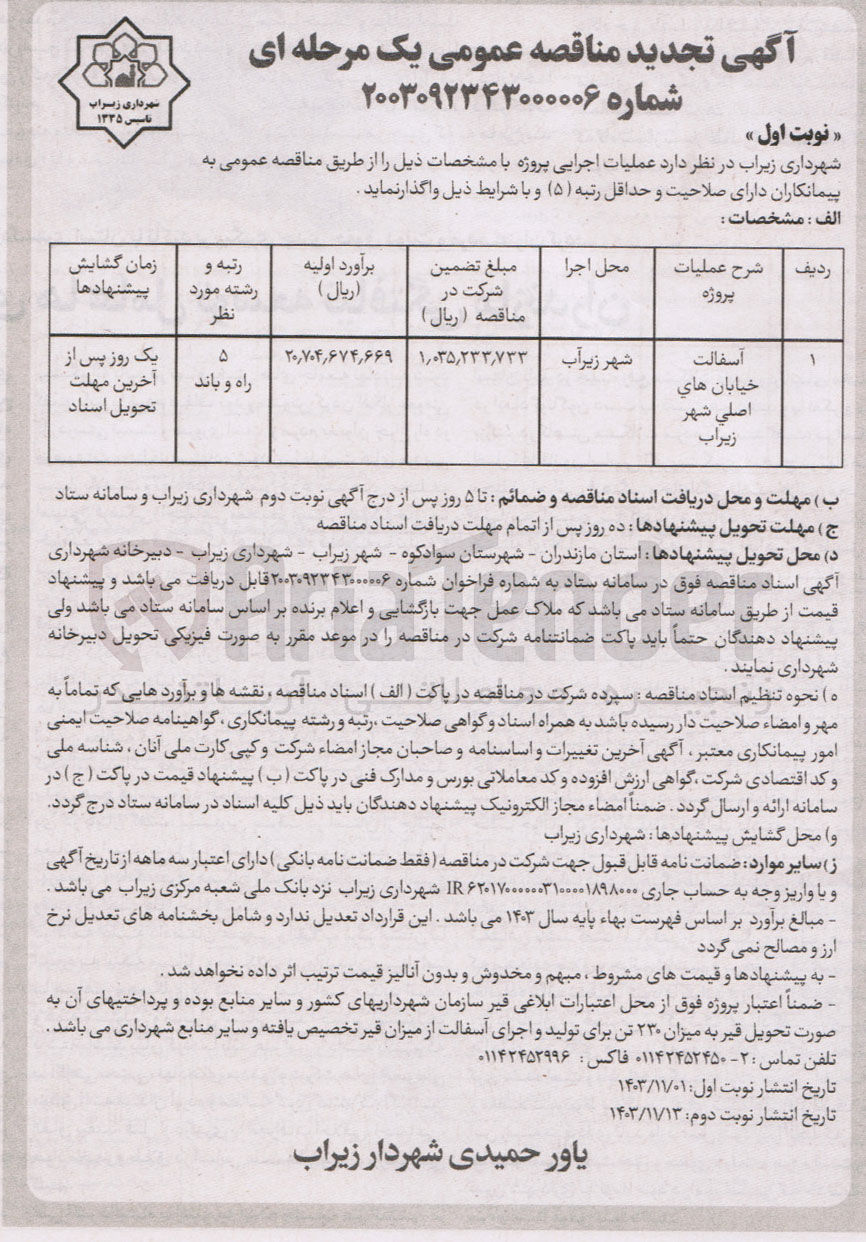 آگهی تجدید مناقصه عمومی یک مرحله ای
شماره ۲۰۰۳۰۹۲۳۴۳۰۰۰۰۰۶
شهرداری زیراب
تاسیس ۱۳۳۵
« نوبت اول »
شهرداری زیراب در نظر دارد عملیات اجرایی پروژه با مشخصات ذیل را از طریق مناقصه عمومی به
پیمانکاران دارای صلاحیت و حداقل رتبه (۵) و با شرایط ذیل واگذارنماید .
الف : مشخصات :
ردیف | شرح عملیات پروژه | محل اجرا | مبلغ تضمین شرکت در مناقصه (ریال) | برآورد اولیه (ریال) | رتبه و رشته مورد نظر | زمان گشایش پیشنهادها
۱ | آسفالت خیابان هاي اصلي شهر زیراب | شهر زیرآب | ۱,۰۳۵,۲۳۳,۷۳۳ | ۲۰,۷۰۴,۶۷۴,۶۶۹ | ۵ راه و باند | یک روز پس از آخرین مهلت تحویل اسناد
ب) مهلت و محل دریافت اسناد مناقصه و ضمائم : تا ۵ روز پس از درج آگهی نوبت دوم شهرداری زیراب و سامانه ستاد
ج) مهلت تحویل پیشنهادها : ده روز پس از اتمام مهلت دریافت اسناد مناقصه
د) محل تحویل پیشنهادها : استان مازندران - شهرستان سوادکوه - شهر زیراب - شهرداری زیراب - دبیرخانه شهرداری
آگهی اسناد مناقصه فوق در سامانه ستاد به شماره فراخوان شماره ۲۰۰۳۰۹۲۳۴۳۰۰۰۰۰۶ قابل دریافت می باشد و پیشنهاد
قیمت از طریق سامانه ستاد می باشد که ملاک عمل جهت بازگشایی و اعلام برنده بر اساس سامانه ستاد می باشد ولی
پیشنهاد دهندگان حتماً باید پاکت ضمانتنامه شرکت در مناقصه را در موعد مقرر به صورت فیزیکی تحویل دبیرخانه
شهرداری نمایند .
ه) نحوه تنظیم اسناد مناقصه : سپرده شرکت در مناقصه در پاکت (الف) اسناد مناقصه ، نقشه ها و برآورد هایی که تماماً به
مهر و امضاء صلاحیت دار رسیده باشد به همراه اسناد و گواهی صلاحیت ،رتبه و رشته پیمانکاری ، گواهینامه صلاحیت ایمنی
امور پیمانکاری معتبر ، آگهی آخرین تغییرات و اساسنامه و صاحبان مجاز امضاء شرکت و کپی کارت ملی آنان ، شناسه ملی
و کد اقتصادی شرکت ،گواهی ارزش افزوده و کد معاملاتی بورس و مدارک فنی در پاکت (ب) پیشنهاد قیمت در پاکت (ج) در
سامانه ارائه و ارسال گردد . ضمناً امضاء مجاز الکترونیک پیشنهاد دهندگان باید ذیل کلیه اسناد در سامانه ستاد درج گردد.
و) محل گشایش پیشنهادها : شهرداری زیراب
ز) سایر موارد : ضمانت نامه قابل قبول جهت شرکت در مناقصه (فقط ضمانت نامه بانکی) دارای اعتبار سه ماهه از تاریخ آگهی
و یا واریز وجه به حساب جاری IR ۶۲۰۱۷۰۰۰۰۰۰۳۱۰۰۰۰۱۸۹۸۰۰۰ شهرداری زیراب نزد بانک ملی شعبه مرکزی زیراب می باشد .
- مبالغ برآورد بر اساس فهرست بهاء پایه سال ۱۴۰۳ می باشد . این قرارداد تعدیل ندارد و شامل بخشنامه های تعدیل نرخ
ارز و مصالح نمی گردد
- به پیشنهادها و قیمت های مشروط ، مبهم و مخدوش و بدون آنالیز قیمت ترتیب اثر داده نخواهد شد .
- ضمناً اعتبار پروژه فوق از محل اعتبارات ابلاغی قیر سازمان شهرداریهای کشور و سایر منابع بوده و پرداختیهای آن به
صورت تحویل قیر به میزان ۲۳۰ تن برای تولید و اجرای آسفالت از میزان قیر تخصیص یافته و سایر منابع شهرداری می باشد .
تلفن تماس : ۲- ۰۱۱۴۲۴۵۲۴۵۰ فاکس : ۰۱۱۴۲۴۵۲۹۹۶
تاریخ انتشار نوبت اول: ۱۴۰۳/۱۱/۰۱
تاریخ انتشار نوبت دوم: ۱۴۰۳/۱۱/۱۳
یاور حمیدی شهردار زیراب
AriaTender